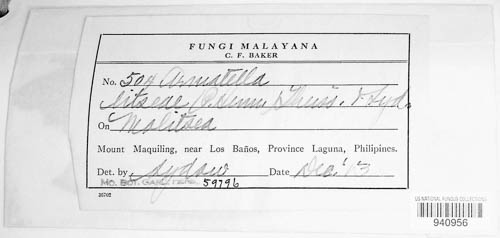 FUNGI MALAYANA
C. F. BAKER
No. 504 Armatella
litseae (P. Henn.) Theiss. & Syd.
On Malitsea
Mount Maquiling, near Los Baños, Province Laguna, Philipines.
Det. by Sydow Date Dec. '13
MO. BOT. GARD. 59796
26702
US NATIONAL FUNGUS COLLECTIONS
940956